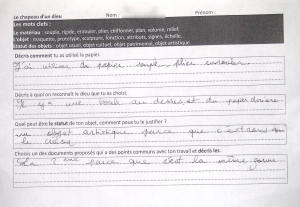 Le chapeau d'un dieu Nom : Prénom :
Les mots clefs :
Le matériau : souple, rigide, enrouler, plier, chiffonner, plan, volume, relief.
L'objet : maquette, prototype, sculpture, fonction, attributs, signes, échelle.
Statut des objets : objet usuel, objet cultuel, objet patrimonial, objet artistique.
Décris comment tu as utilisé le papier.
J'ai utiliser du papier souple plier enrouler
Décris à quoi on reconnaît le dieu que tu as choisi.
Il y a une boule au dessus et du papier
Quel peut être le statut de ton objet, comment peux tu le justifier ?
un objet artistique parce que c'est nous
le
Choisis un des documents proposés qui a des points communs avec ton travail et décris les.
La 2ème parce que c'est la même forme